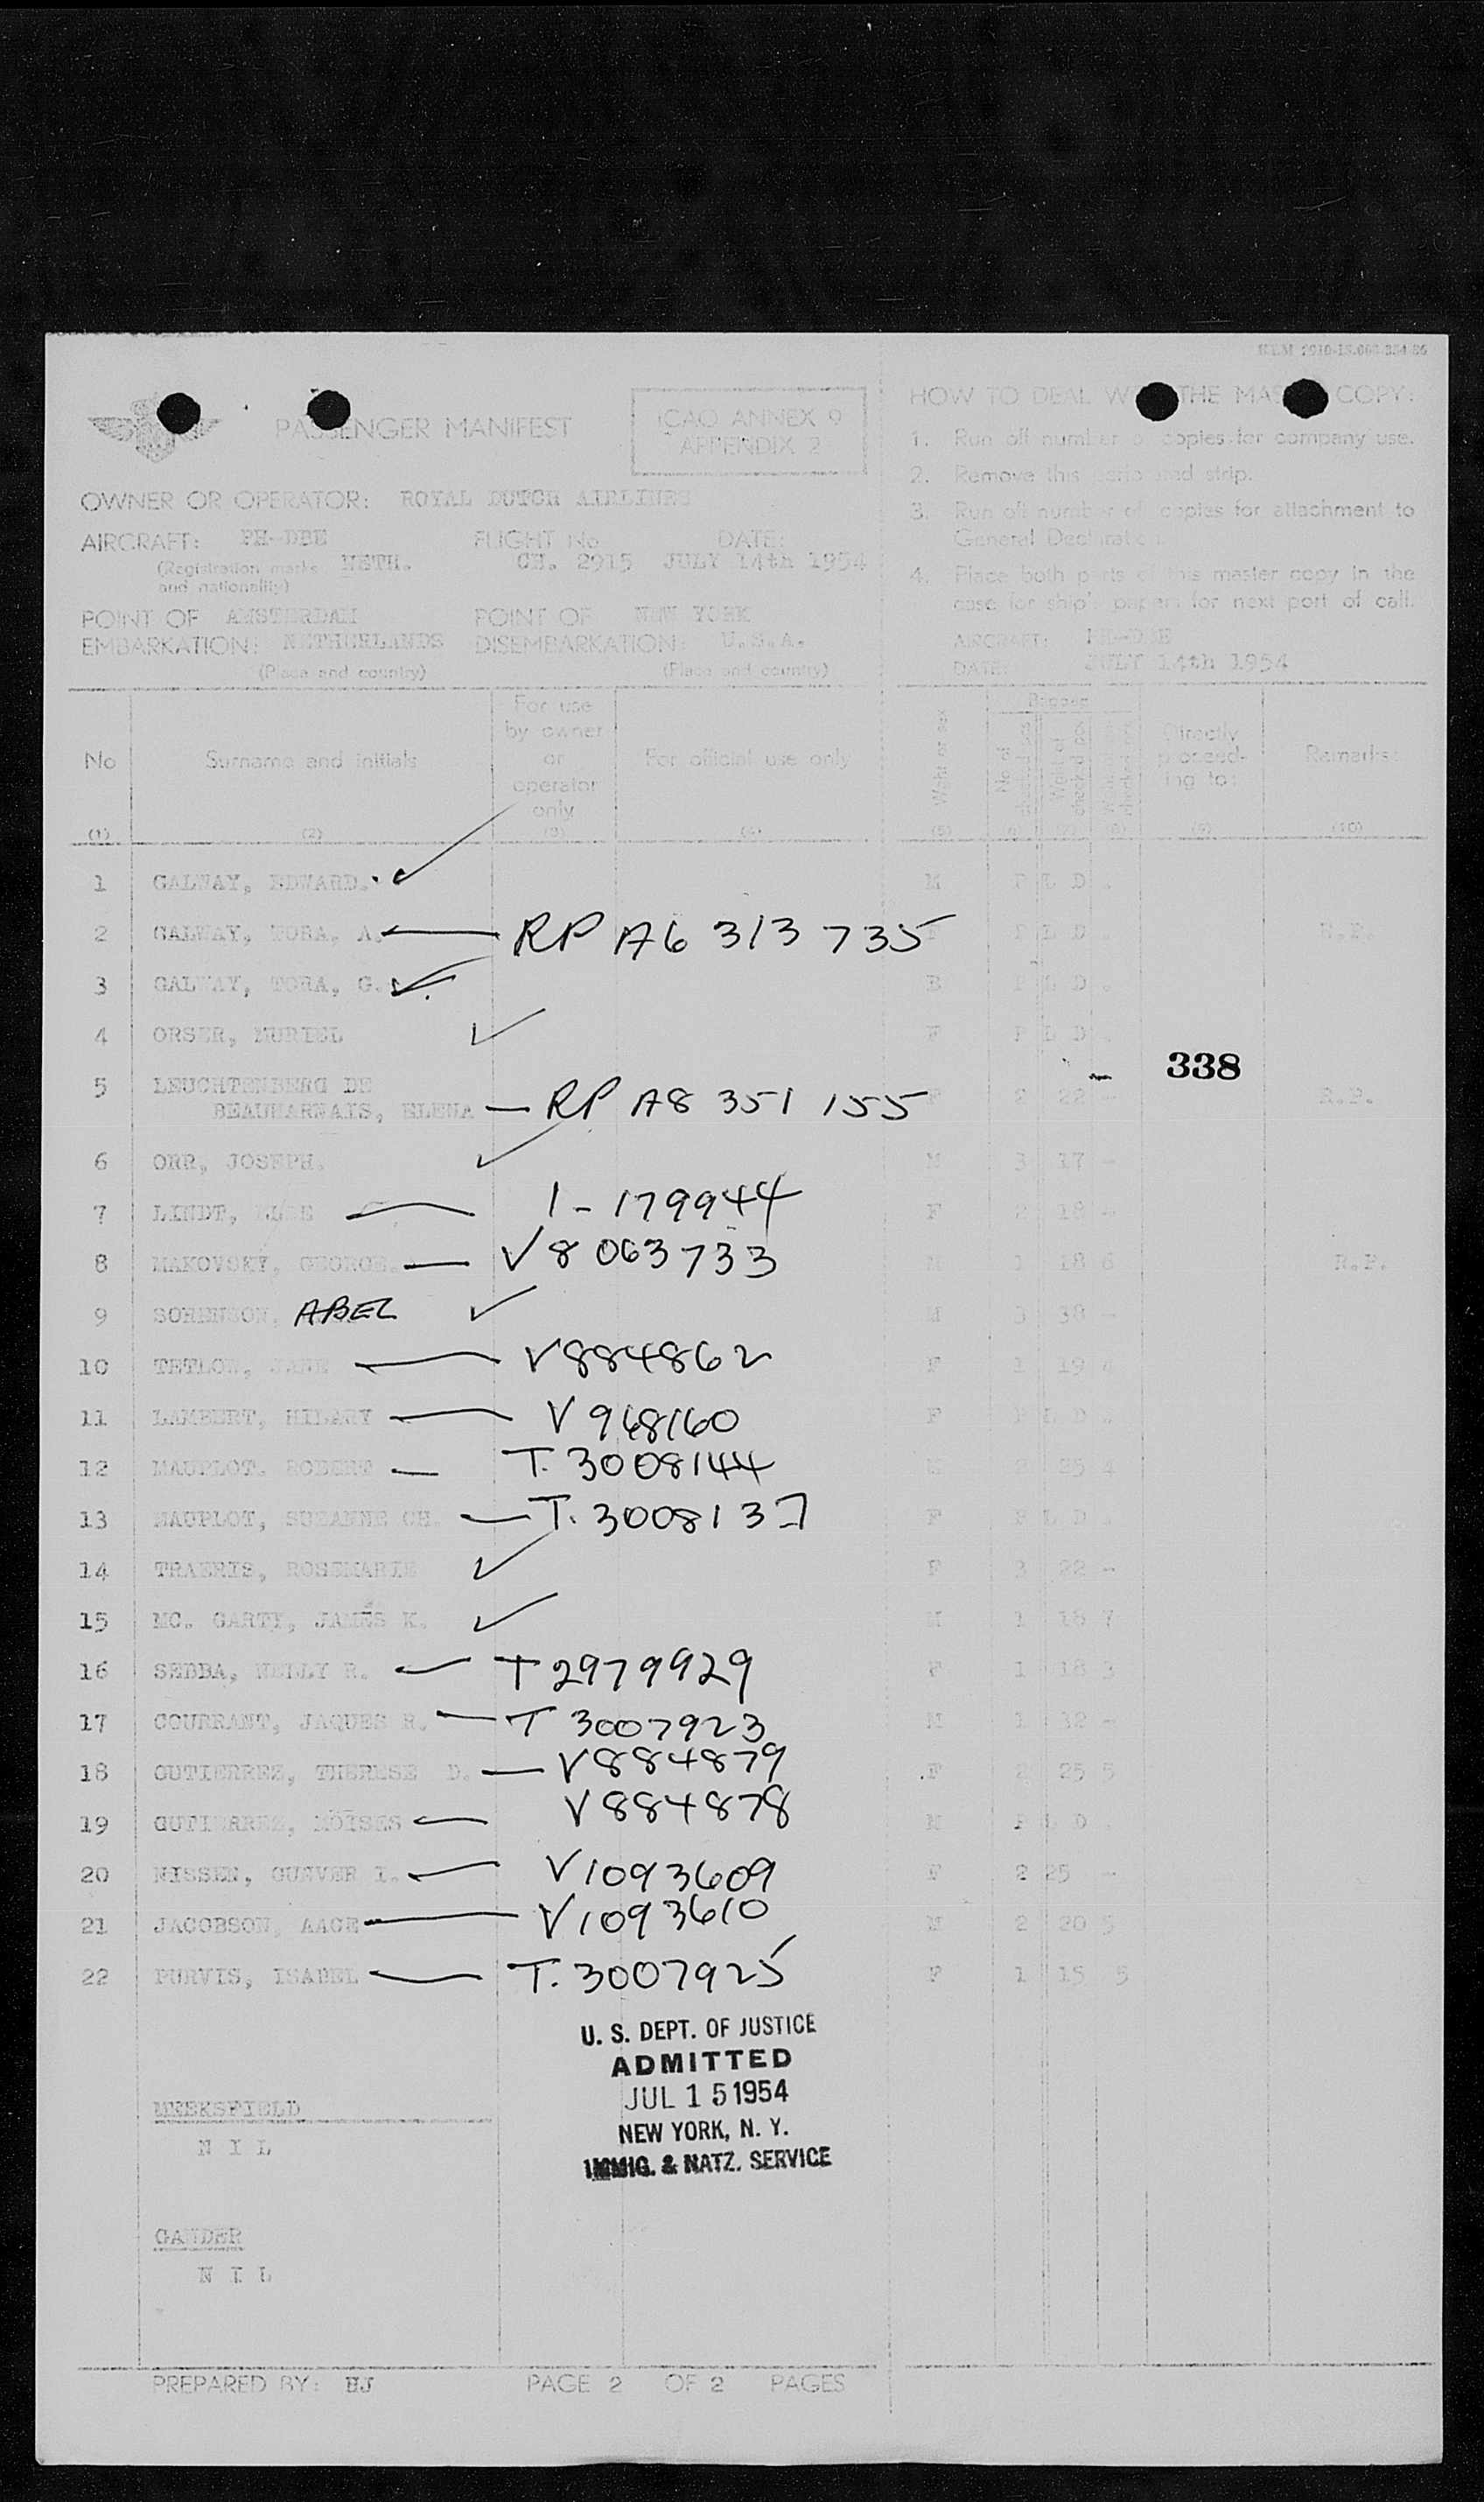 PASSENGER MANIFEST
ICAO ANNEX 9
APPENDIX 2
OWNER OR OPERATOR: ROYAL DUTCH AIRLINES
AIRCRAFT: PH-DBE FLIGHT No DATE:
(Registration marks and nationality) NETH. CH. 2915 JULY 14th 1954
POINT OF EMBARKATION: AMSTERDAM NETHERLANDS POINT OF DISEMBARKATION: NEW YORK U.S.A.
(Place and country) (Place and country)
HOW TO DEAL THE COPY:
1. Run off number copies for company use.
2. Remove this strip.
3. Run off number of copies for attachment to
General Declaration.
4. Place both parts of this master copy in the
case for ship's papers for next port of call.
AIRCRAFT: PH-DBE
DATE: JULY 14th 1954
No Surname and initials For use by owner or operator only For official use only Directly proceeding to: Remarks:
(1) (2) (3) (4) (5) (6) (7) (8) (9) (10)
1 GALWAY, EDWARD. M P L D .
2 GALWAY, A. RP A6 313 735 P L D R.P.
3 GALWAY, TORA, G. P L D .
4 ORSER, MURIEL F P L D .
338
5 LEUCHTENBERG DE
BEAUHARNAIS, ELENA RP A8 351 155 2 22 - R.P.
6 ORR, JOSEPH. M 3 17 -
7 LINDT, 1-179944 F 2 18 -
8 MAKOVSKY, GEORGE. V8063733 M 1 18 6 R.P.
9 SORENSON, ABEL M 3 38 -
10 TETLOW, V884862 F 1 19 4
11 LAMBERT, HILARY V968160 F P L D .
12 MAUPLOT. ROBERT T. 3008144 25 4
13 MAUPLOT, SUZANNE CH. T. 3008137 F P L D .
14 ROSEMARIE F 3 22 -
15 MC. GARTY, JAMES K. M 1 18 7
16 SEBBA, NELLY R. T2979929 F 1 18 3
17 COURRANT, JAQUES R. T 3007923 M 12 -
18 GUTIERREZ, THERESE D. V884879 F 2 25 5
19 GUTIERREZ, MOISES V884878 M P L D .
20 NISSEN, GUNVER I. V1093609 F 2 25 -
21 JACOBSON, AAGE V1093610 M 2 20 5
22 PURVIS, ISABEL T. 3007925 F 1 15 5
U. S. DEPT. OF JUSTICE
ADMITTED
JUL 15 1954
NEW YORK, N. Y.
IMMIG. & NATZ. SERVICE
MEEKSFIELD
N I L
GANDER
N I L
PREPARED BY: HJ PAGE 2 OF 2 PAGES